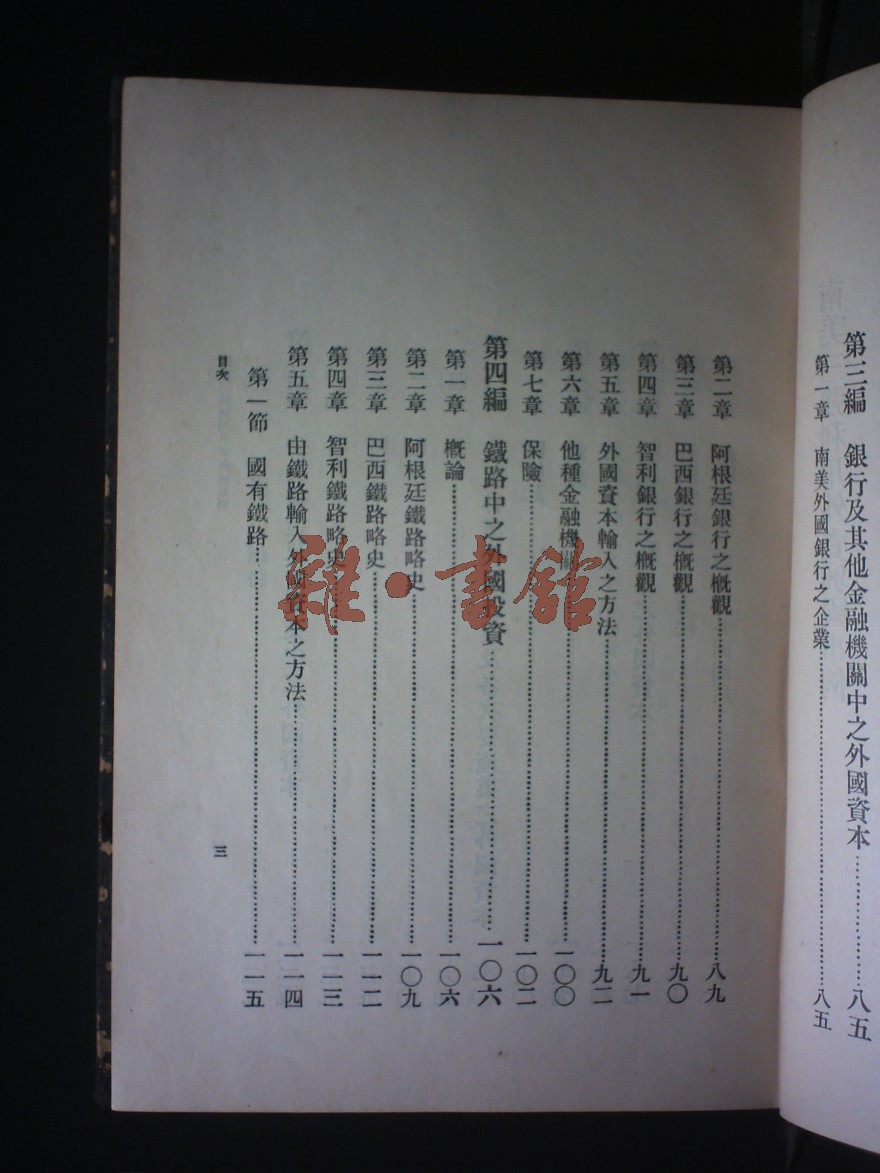 第三編 銀行及其他金融機關中之外國資本……八五
第一章 南美外國銀行之企業……八五
第二章 阿根廷銀行之槪觀……八九
第三章 巴西銀行之槪觀……九〇
第四章 智利銀行之槪觀……九一
第五章 外國資本輸入之方法……九二
第六章 他種金融機關……一〇〇
第七章 保險……一〇二
第四編 鐵路中之外國投資……一〇六
第一章 槪論……一〇六
第二章 阿根廷鐵路略史……一〇九
第三章 巴西鐵路略史……一一二
第四章 智利鐵路略史……一一三
第五章 由鐵路輸入外國資本之方法……一一四
第一節 國有鐵路……一一五
目次 三
雜·書館